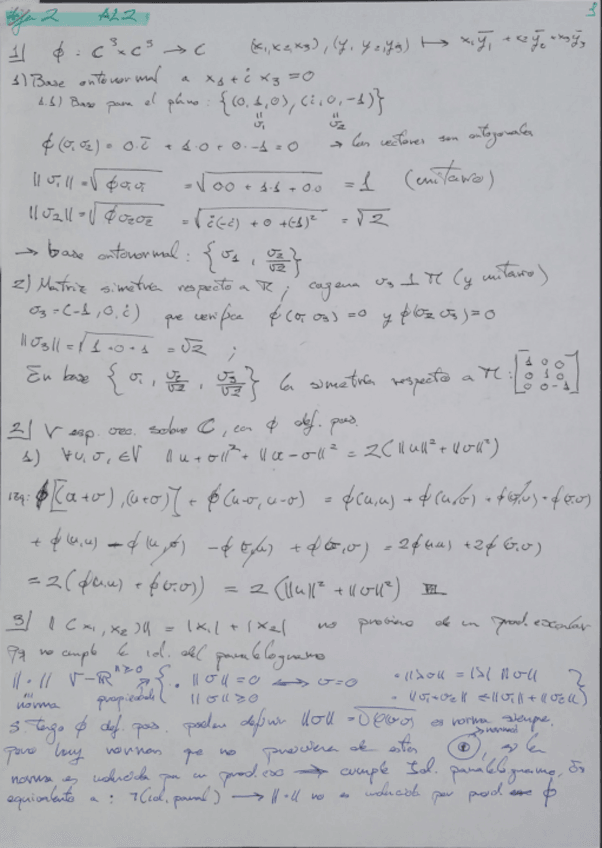 Hoja 2 AL2 1
1) ϕ : C³ x C³ → C (x₁, x₂ x₃), (y₁ y₂, y₃) ↦ x₁ȳ₁ + x₂ȳ₂ + x₃ȳ₃
1) Base ortonormal a x₁ + i x₃ = 0
1.1) Base para el plano : {(0,1,0), (i,0,-1)}
" σ₁ " σ₂
ϕ(σ₁σ₂) = 0·ī + 1·0 + 0·-1 = 0 → los vectores son ortogonales
||σ₁|| = √ϕσ₁σ₁ = √0·0 + 1·1 + 0·0 = 1 (unitario)
||σ₂|| = √ϕσ₂σ₂ = √i(-i) + 0 + (-1)² = √2
→ base ortonormal : {σ₁, σ₂/√2}
2) Matriz simetria respecto a π ; σ₃ ⊥ π (y unitario)
σ₃ = (-1, 0, i) que verifica ϕ(σ₁ σ₃) = 0 y ϕ(σ₂ σ₃) = 0
||σ₃|| = √1+0+1 = √2 ;
En base {σ₁, σ₂/√2, σ₃/√2} la simetría respecto a π : [1 0 0
0 1 0
0 0 -1]
2) V esp. vec. sobre C, con ϕ def. pos.
1) ∀u, σ, ∈V ||u+σ||² + ||u-σ||² = 2(||u||² + ||σ||²)
izq: ϕ[(u+σ), (u+σ)] + ϕ(u-σ, u-σ) = ϕ(u,u) + ϕ(u,σ) + ϕ(σ,u) + ϕ(σ,σ)
+ ϕ(u,u) - ϕ(u,σ) - ϕ(σ,u) + ϕ(σ,σ) = 2ϕ(u,u) + 2ϕ(σ,σ)
= 2(ϕ(u,u) + ϕ(σ,σ)) = 2(||u||² + ||σ||²)
3) ||(x₁, x₂)|| = |x₁| + |x₂| no proviene de un prod. escalar
pq no cumple la id. del paralelogramo
||·|| V → R^≥0 { · ||σ|| = 0 ⟷ σ = 0 · ||λσ|| = |λ| ||σ||
norma propiedades ||σ|| ≥ 0 · ||σ₁+σ₂|| ≤ ||σ₁|| + ||σ₂|| }
Si tengo ϕ def. pos. podemos definir ||σ|| = √ϕ(σ,σ) es norma siempre,
pero hay normas que no provienen de estos, si la
norma es inducida por un prod. → cumple Id. paralelogramo, Es
equivalente a : ¬(id. paral) → ||·|| no es inducida por prod ϕ